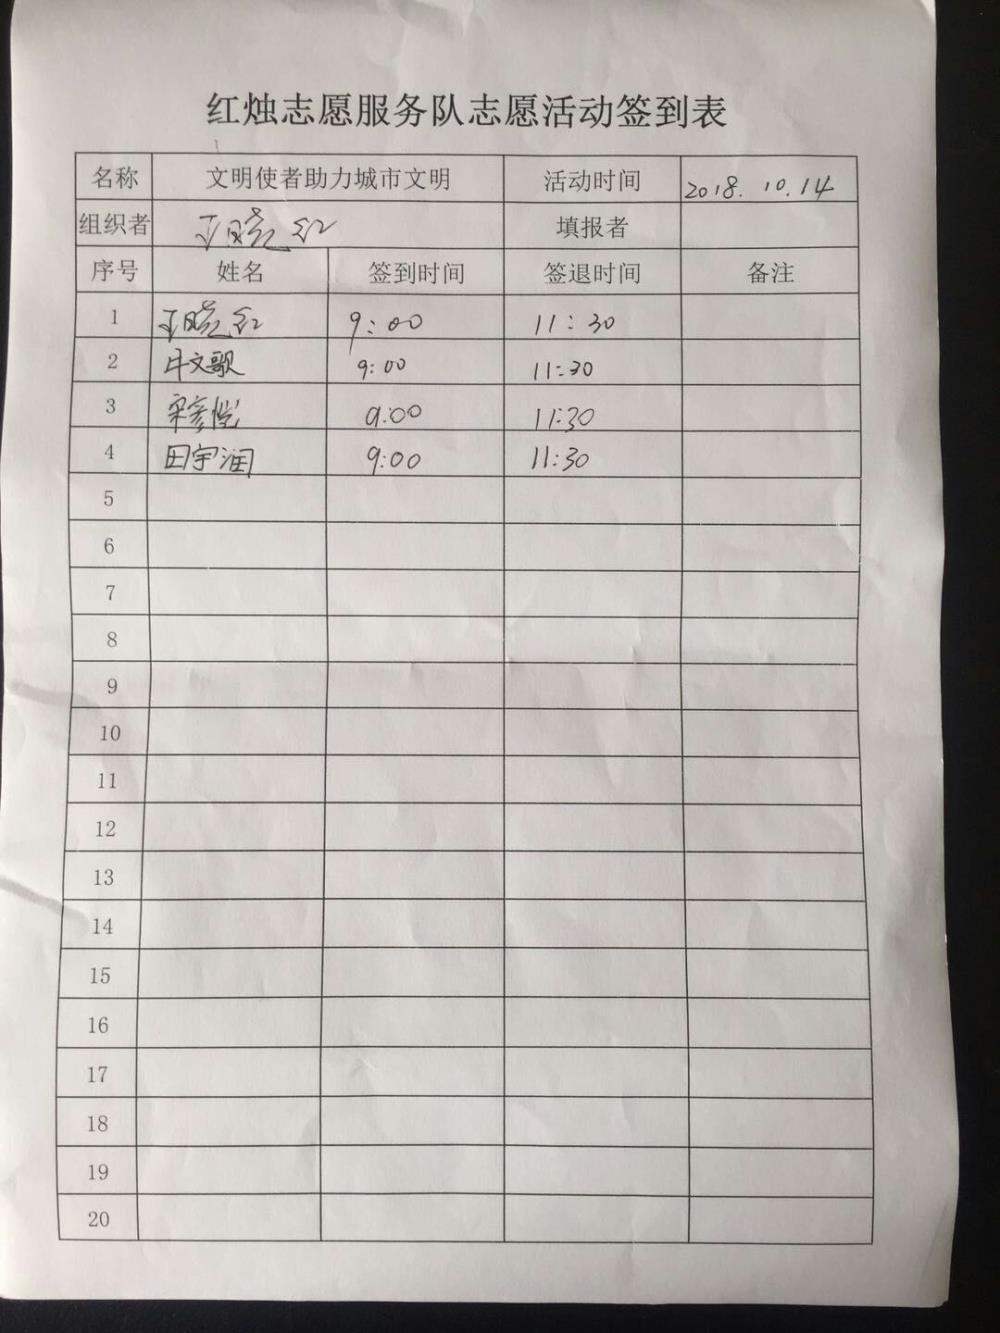 红烛志愿服务队志愿活动签到表
名称 文明使者助力城市文明 活动时间 2018.10.14
组织者 王晓红 填报者
序号 姓名 签到时间 签退时间 备注
1 王晓红 9:00 11:30
2 文歌 9:00 11:30
3 宋彦悦 9:00 11:30
4 田宇润 9:00 11:30
5
6
7
8
9
10
11
12
13
14
15
16
17
18
19
20